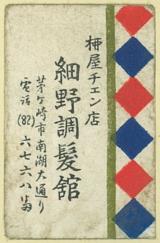 柳屋チエン店
細野調髪舘
茅ケ崎市南湖大通り
電話(82)六七六八番